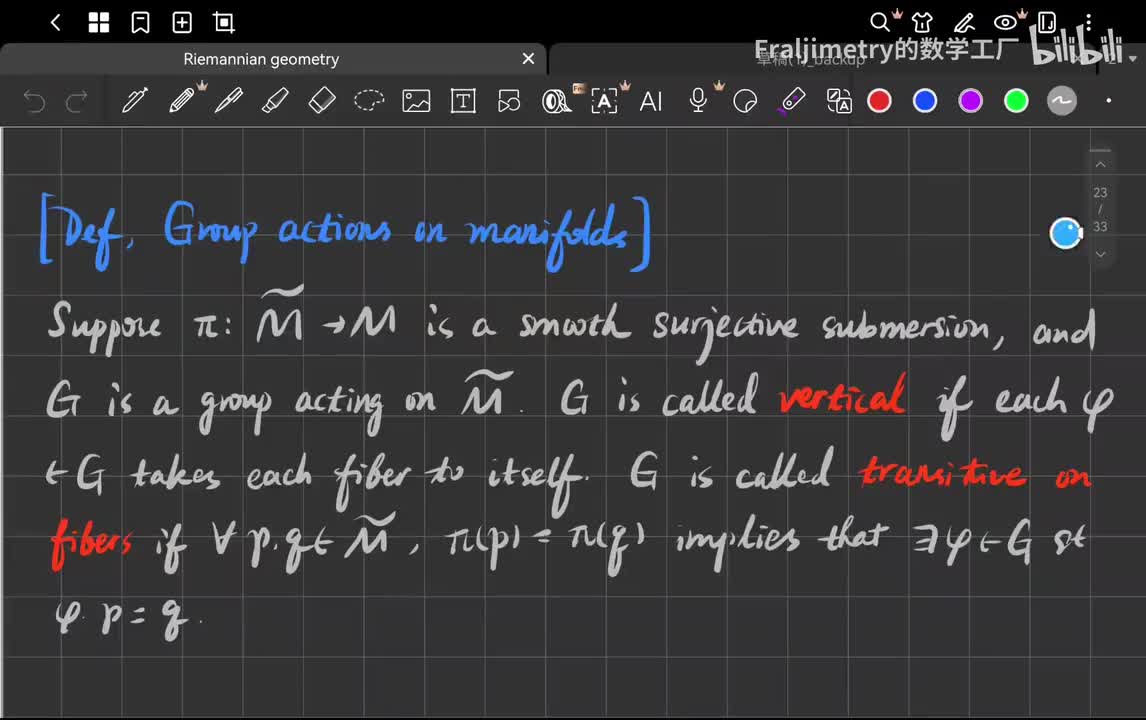 Fraljimetry的数学工厂 bilibili
Riemannian geometry
草稿(1)_backup
T
A
AI
A
23
/
33
[Def, Group actions on manifolds]
Suppose π: M̃ → M is a smooth surjective submersion, and
G is a group acting on M̃. G is called vertical if each φ
∈ G takes each fiber to itself. G is called transitive on
fibers if ∀ p.q ∈ M̃, π(p) = π(q) implies that ∃ φ ∈ G st
φ. p = q.